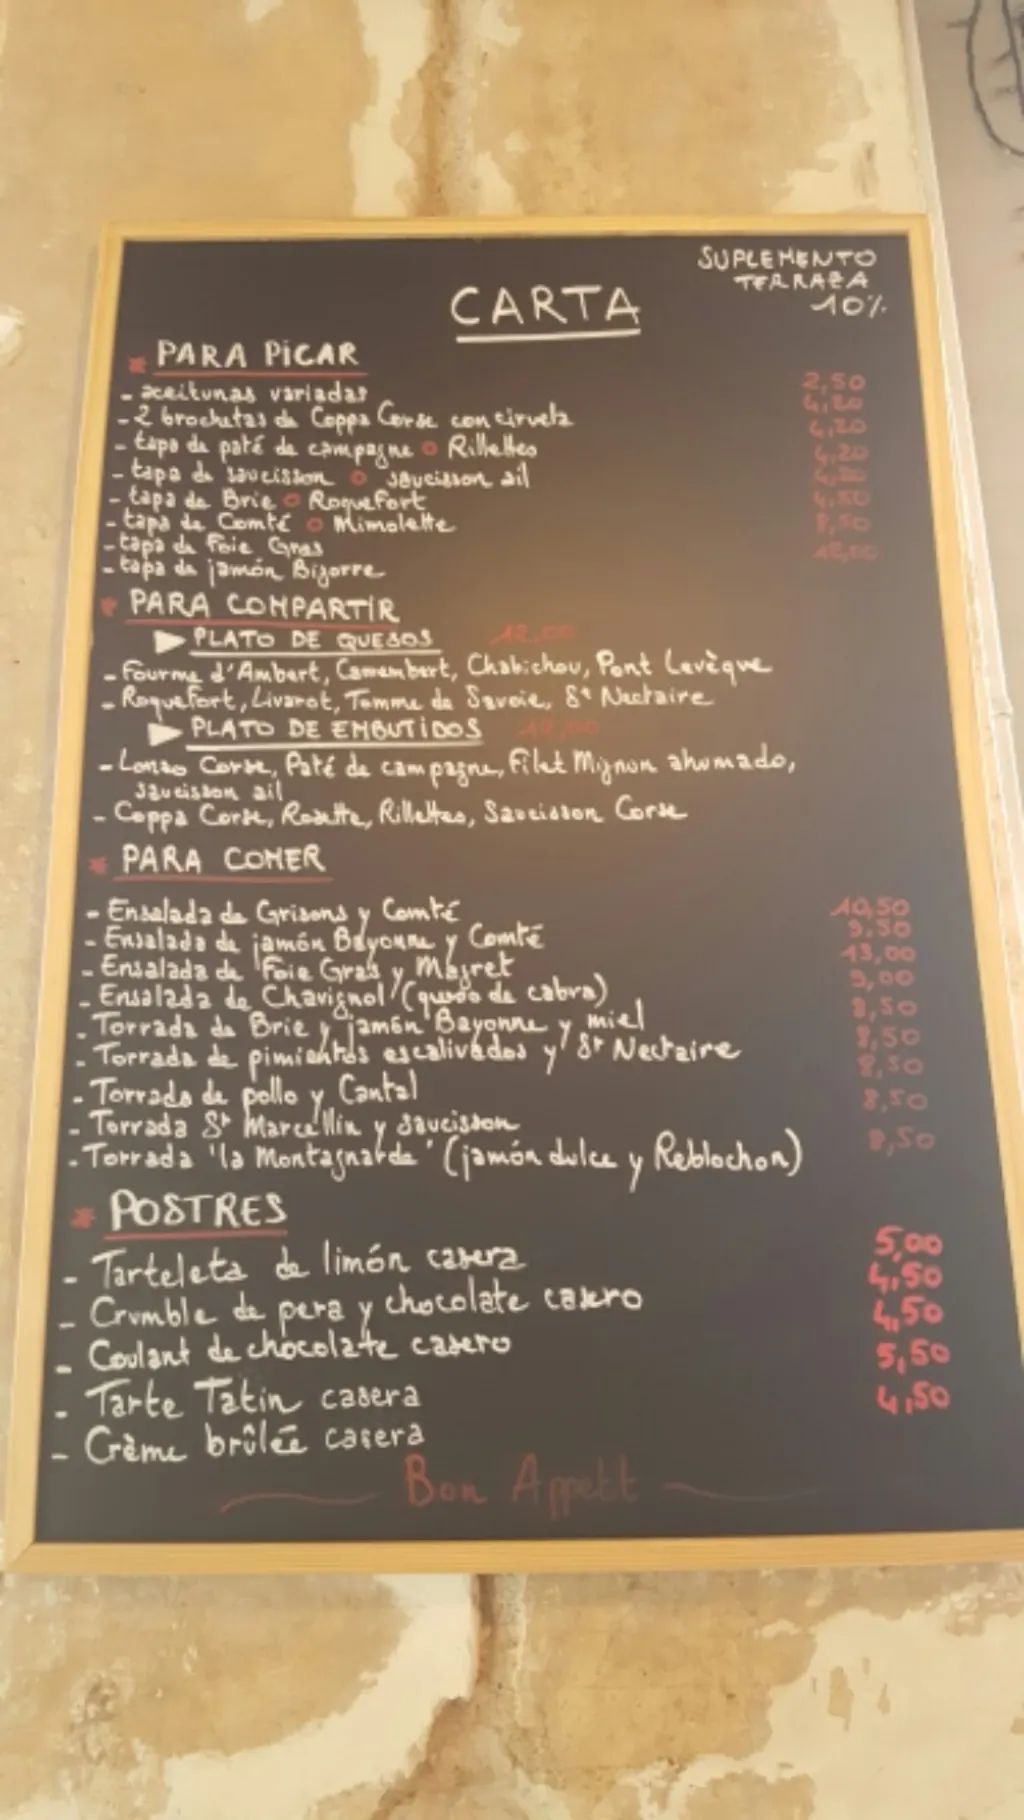 SUPLEMENTO
TERRAZA
10%
CARTA
* PARA PiCAR
- aceitunas variadas 2,50
- 2 brochetas de Coppa Corse con ciruela 4,20
- tapa de paté de campagne o Rillettes 4,20
- tapa de saucisson o saucisson ail 4,20
- tapa de Brie o Roquefort
- tapa de Comté o Mimolette 4,50
- tapa de Foie Gras 8,50
- tapa de jamón Bigorre
* PARA COMPARTIR
▶ PLATO DE QUESOS 12,00
- Fourme d'Ambert, Camembert, Chabichou, Pont Levèque
- Roquefort, Livarot, Tomme de Savoie, St Nectaire
▶ PLATO DE EMBUTiDOS
- Lonzo Corse, Paté de campagne, Filet Mignon ahumado,
saucisson ail
- Coppa Corse, Rosette, Rillettes, Saucisson Corse
* PARA COMER
- Ensalada de Grisons y Comté 10,50
- Ensalada de jamón Bayonne y Comté 9,50
- Ensalada de Foie Gras y Magret 13,00
- Ensalada de Chavignol (queso de cabra) 9,00
- Torrada de Brie y jamón Bayonne y miel 8,50
- Torrada de pimientos escalivados y St Nectaire 8,50
- Torrada de pollo y Cantal 8,50
- Torrada St Marcellin y saucisson 8,50
- Torrada 'la Montagnarde' (jamón dulce y Reblochon) 8,50
* POSTRES
- Tarteleta de limón casera 5,00
- Crumble de pera y chocolate casero 4,50
- Coulant de chocolate casero 4,50
- Tarte Tatin casera 5,50
- Crème brûlée casera 4,50
Bon Appetit